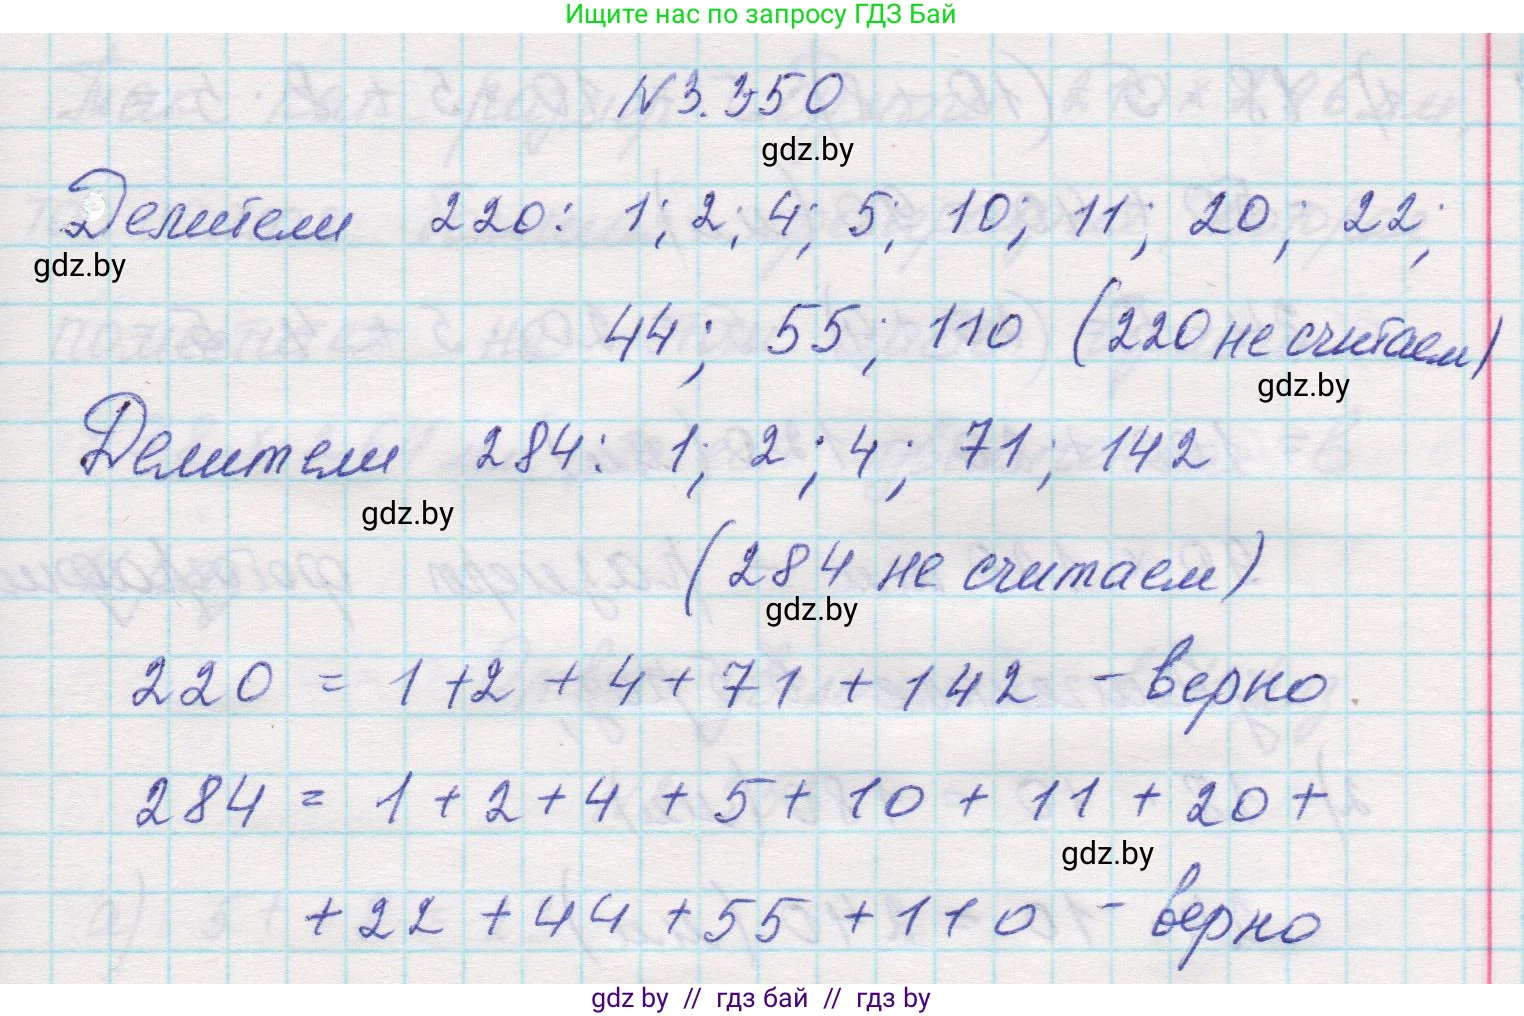 Ищите нас по запросу ГДЗ Бай
N 3.350
gdz.by
Делители 220: 1; 2; 4; 5; 10; 11; 20; 22;
gdz.by
44; 55; 110 (220 не считаем)
gdz.by
Делители 284: 1; 2; 4; 71; 142
gdz.by
(284 не считаем)
gdz.by
220 = 1+2+4+71+142 - верно
284 = 1+2+4+5+10+11+20+
gdz.by
+22+44+55+110 - верно
gdz by // гдз бай // гдз by